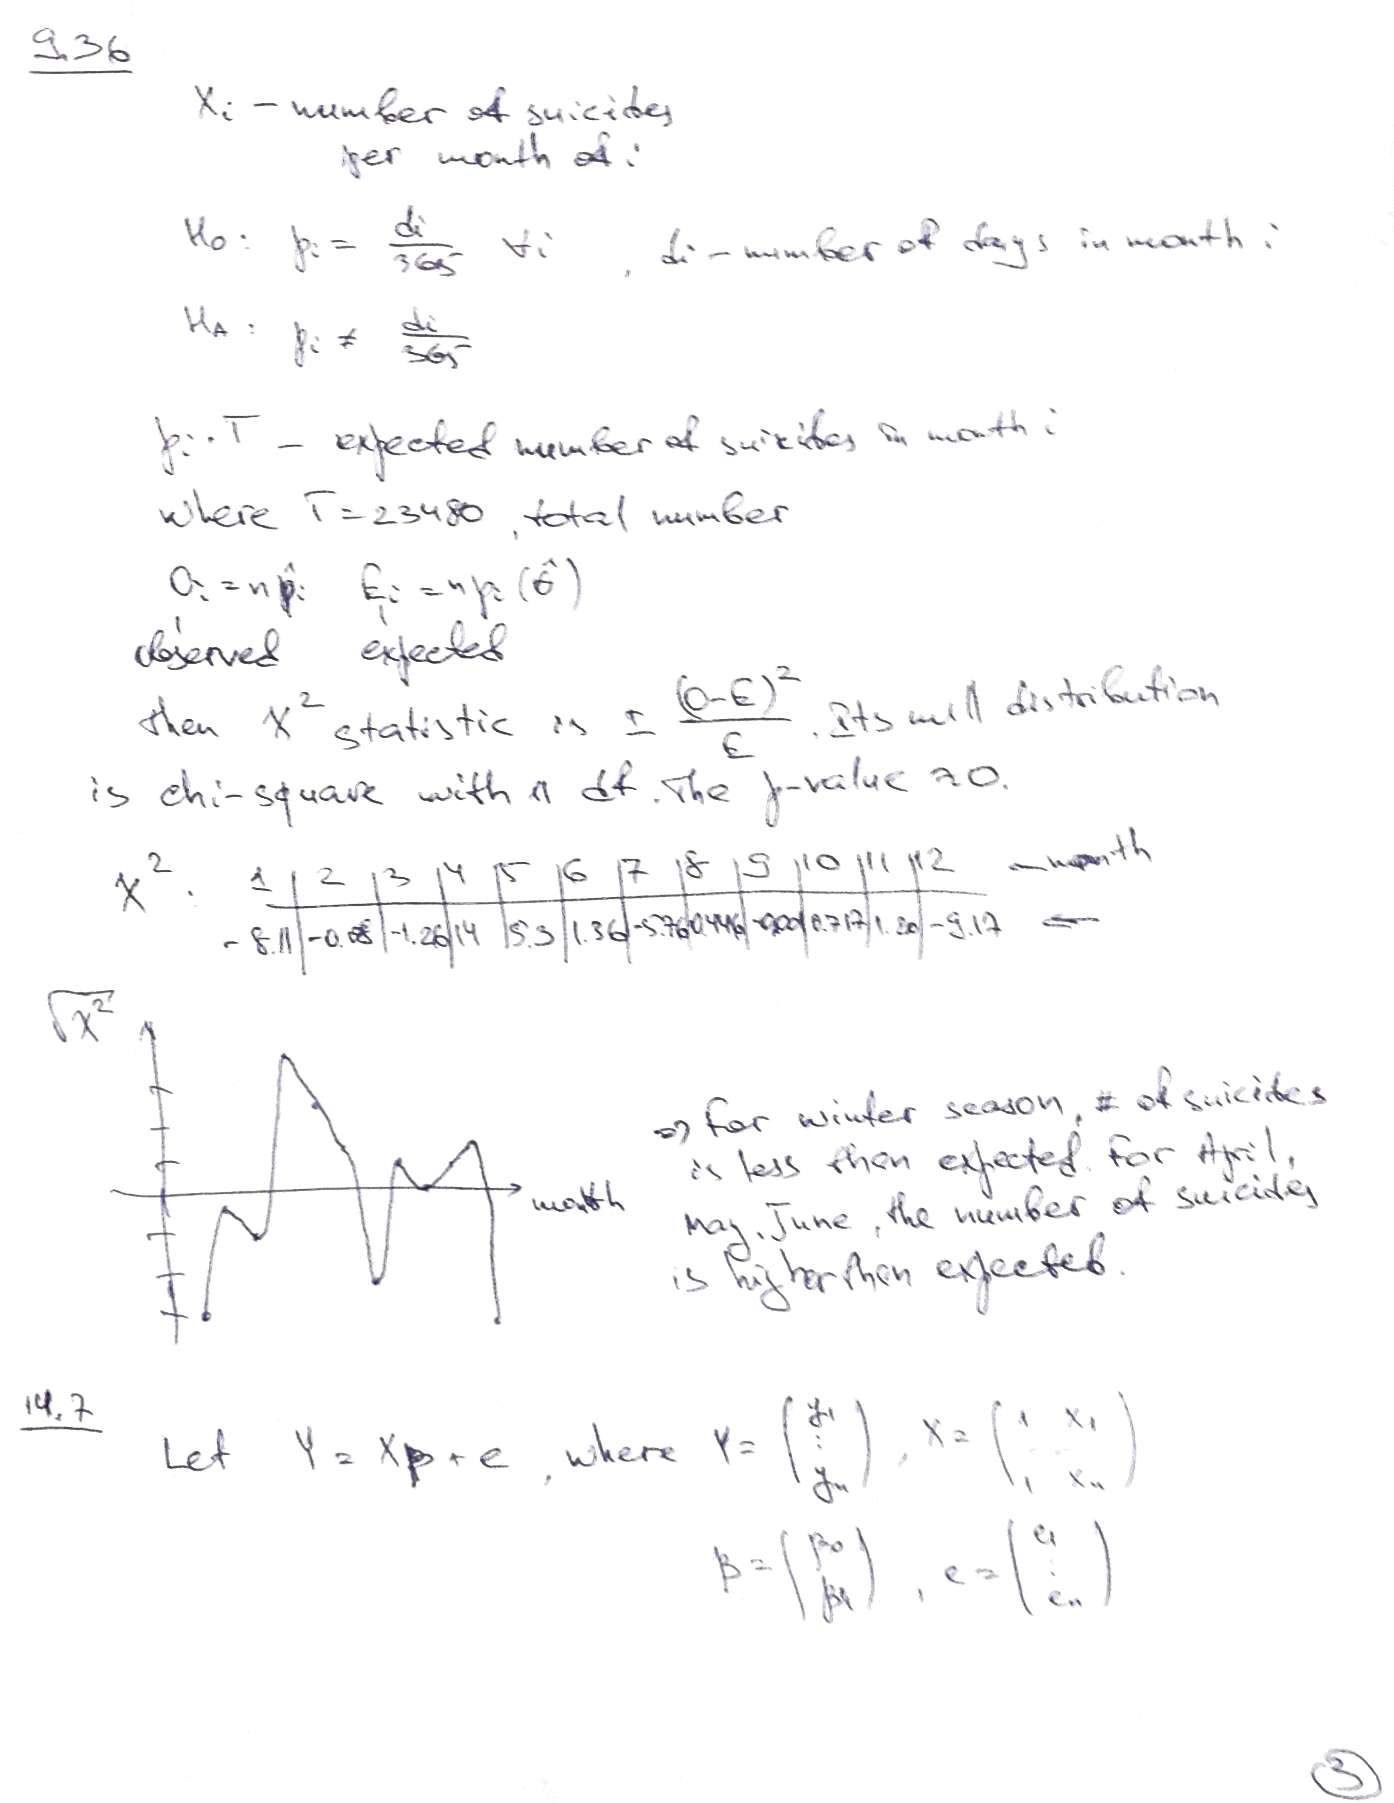 9.36
Xi – number of suicides
per month of i
H0: pi = di/365 ∀i, di – number of days in month i
HA: pi ≠ di/365
pi·T – expected number of suicides in month i
where T = 23480, total number
Oi = np̂i Ei = npi(θ̂)
observed expected
then X² statistic is ± (O-E)²/E. Its null distribution
is chi-square with 11 df. The p-value ≈ 0.
X²: 1 2 3 4 5 6 7 8 9 10 11 12 – month
-8.11 -1.26 14 5.3 1.36 -5.76 0.446 0.717 1.20 -9.17 ←
√X²
month
⇒ For winter season, # of suicides
is less then expected. For April,
May, June, the number of suicides
is higher then expected.
14.7
Let Y = Xβ + e, where Y = (y1 ⋮ yn), X = (1 x1 1 xn)
β = (β0 β1), e = (e1 ⋮ en)
3